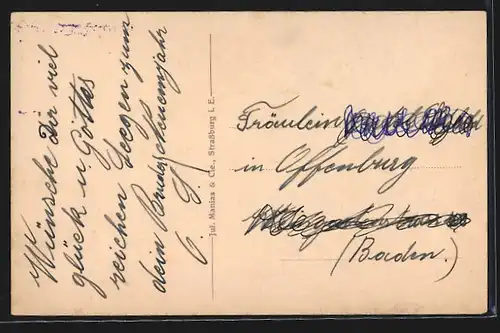 Wünsche Dir viel
glück u. Gottes
reichen Seegen zum
Neuemjahr
dein Bruder
Jul. Manias & Cie., Straßburg i. E.
Fräulein
in Offenburg
(Baden.)